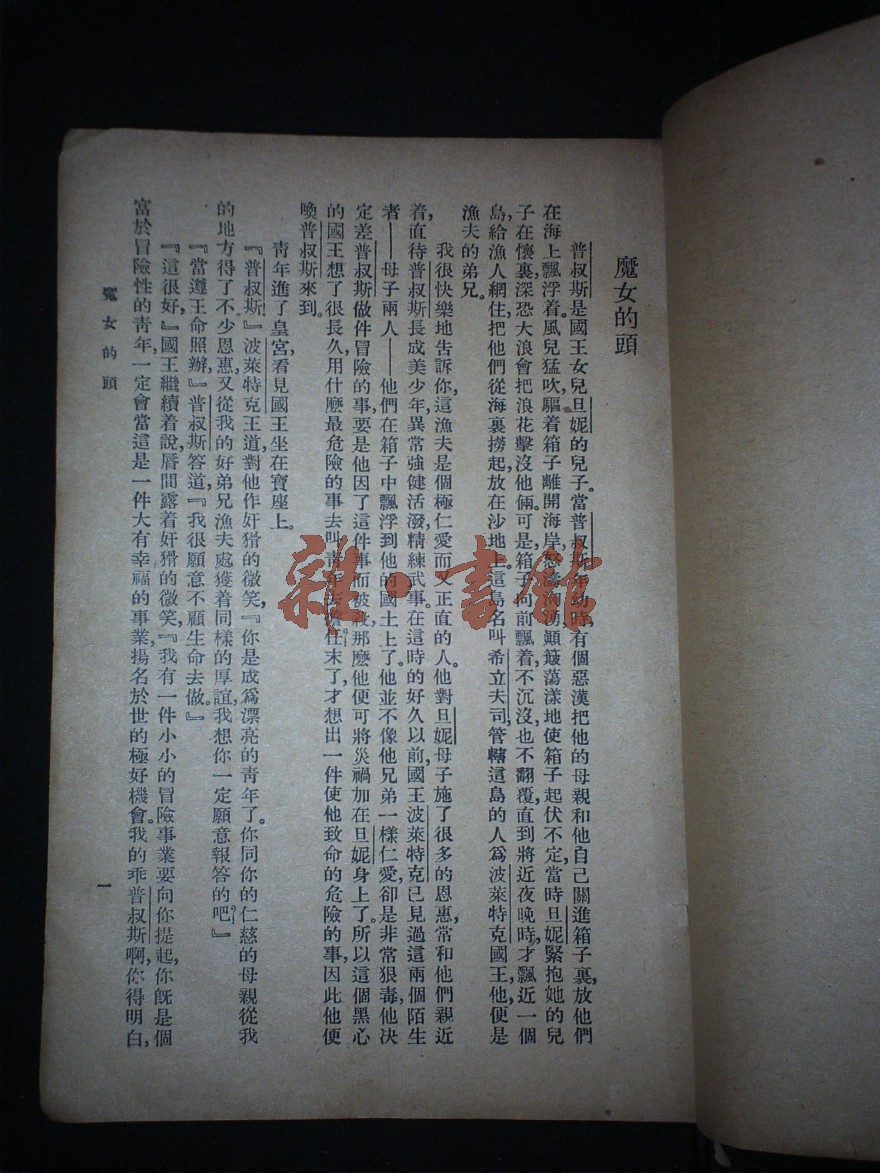 魔女的頭
普叔斯是國王女兒旦妮的兒子。當普叔斯年幼時,有個惡漢把他的母親和他自己關進箱子裏,放他們
在海上飄浮着。風兒猛吹,驅着箱子離開海岸,怒濤洶湧,顛簸蕩漾地使箱子起伏不定,當時旦妮緊抱她的兒
子在懷裏,深恐大浪會把浪花擊沒他倆。可是箱子向前飄着,不沉沒,也不翻覆,直到將近夜晚時,才飄近一個
島,給漁人網住,把他們從海裏撈起,放在沙地上。這島名叫希立夫司,管轄這島的人爲波萊特克國王,他便是
漁夫的弟兄。
我很快樂地告訴你,這漁夫是個極仁愛而又正直的人。他對旦妮母子施了很多的恩惠,常和他們親近
着,直待普叔斯長成美少年,異常強健活潑,精練武事。在這時的好久以前,國王波萊特克已見過這兩個陌生
者——母子兩人——他們在箱子中飄浮到他的國土上了。他並不像他兄弟一樣仁愛,卻是非常狠毒,他决
定差普叔斯做件冒險的事,要是他因了這件事而被殺,那麽他便可將災禍加在旦妮身上了。所以這個黑心
的國王想了很長久,用什麽最危險的事去叫靑年去擔任,末了,才想出一件使他致命的危險的事,因此他便
喚普叔斯來到。
靑年進了皇宮,看見國王坐在寶座上。
『普叔斯』波萊特克王道,對他作奸猾的微笑,『你是成爲漂亮的靑年了。你同你的仁慈的母親從我
的地方得了不少恩惠,又從我的好弟兄漁夫處獲着同樣的厚誼,我想你一定願意報答的吧。』
『當遵王命照辦,』普叔斯答道,『我很願意不顧生命去做。』
『這很好,』國王繼續着說,唇間露着奸猾的微笑,『我有一件小小的冒險事業要向你提起,你旣是個
富於冒險性的靑年,一定會當這是一件大有幸福的事業,揚名於世的極好機會。我的乖普叔斯啊,你得明白,
魔女的頭
一
雜·書館